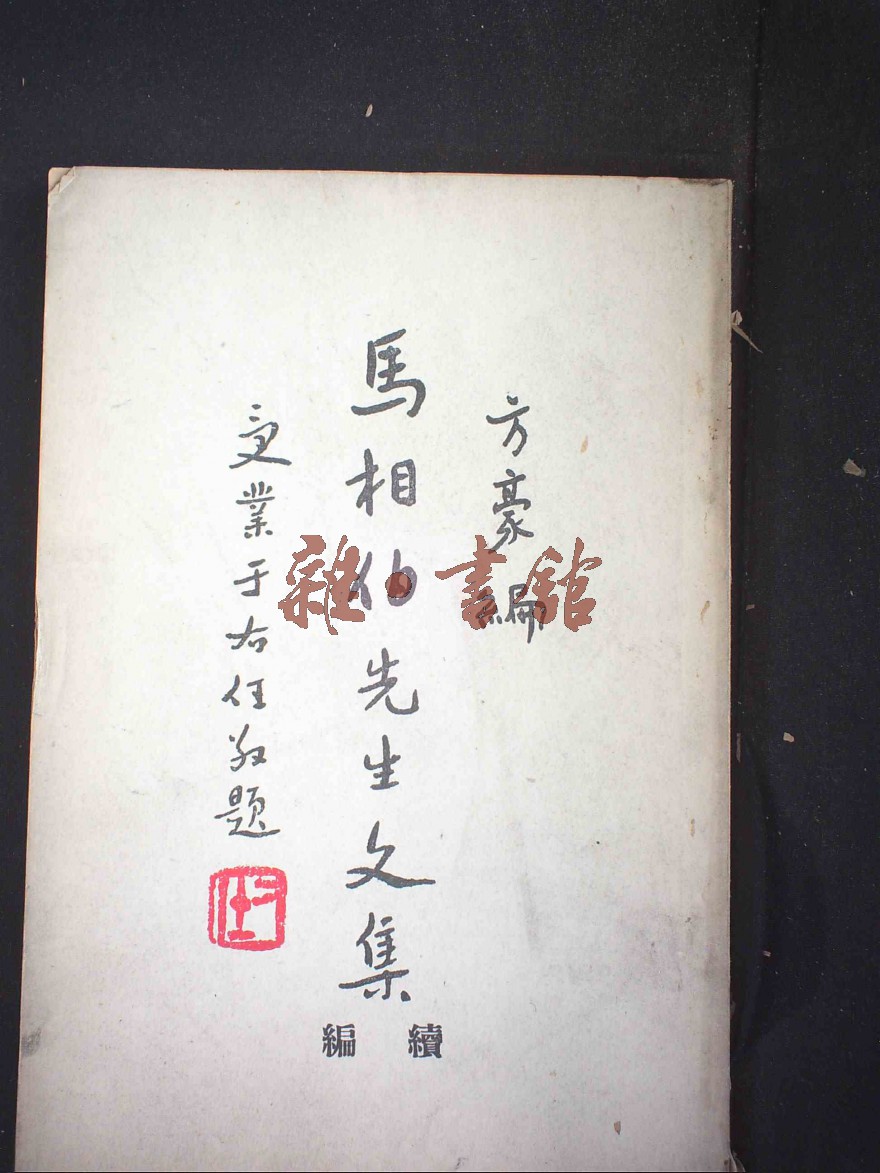 方豪編
馬相伯先生文集
續編
受業于右任敬題
雜·書館